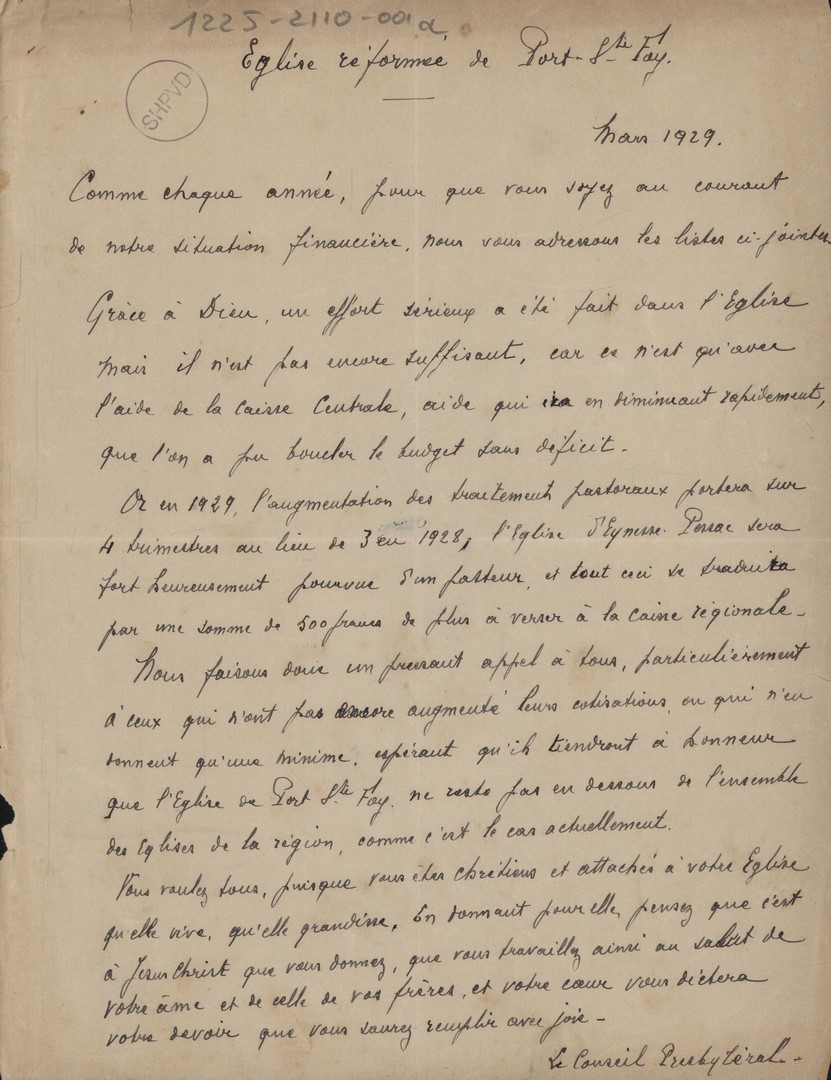 1225-2110-001a
SHPVD
Eglise réformée de Port-Ste Foy.
Mars 1929.
Comme chaque année, pour que vous soyez au courant
de notre situation financière, nous vous adressons les listes ci-jointes
Grâce à Dieu, un effort sérieux a été fait dans l'Eglise
mais il n'est pas encore suffisant, car ce n'est qu'avec
l'aide de la Caisse Centrale, aide qui ira en diminuant rapidement,
que l'on a pu boucler le budget sans déficit.
Or en 1929, l'augmentation des traitement pastoraux portera sur
4 trimestres au lieu de 3 en 1928, l'Eglise d'Eynesse-Pessac sera
fort heureusement pourvue d'un pasteur, et tout ceci se traduira
par une somme de 500 francs de plus à verser à la caisse régionale-
Nous faisons donc un pressant appel à tous, particulièrement
à ceux qui n'ont pas encore augmenté leurs cotisations, ou qui n'en
donnent qu'une minime, espérant qu'ils tiendront à honneur
que l'Eglise de Port Ste Foy, ne reste pas en dessous de l'ensemble
des Eglises de la région, comme c'est le cas actuellement.
Vous voulez tous, puisque vous êtes chrétiens et attachés à votre Eglise
qu'elle vive, qu'elle grandisse. En donnant pour elle, pensez que c'est
à Jésus Christ que vous donnez, que vous travaillez ainsi au salut de
votre âme et de celle de vos frères, et votre cœur vous dictera
votre devoir que vous saurez remplir avec joie-
Le Conseil Presbytéral-